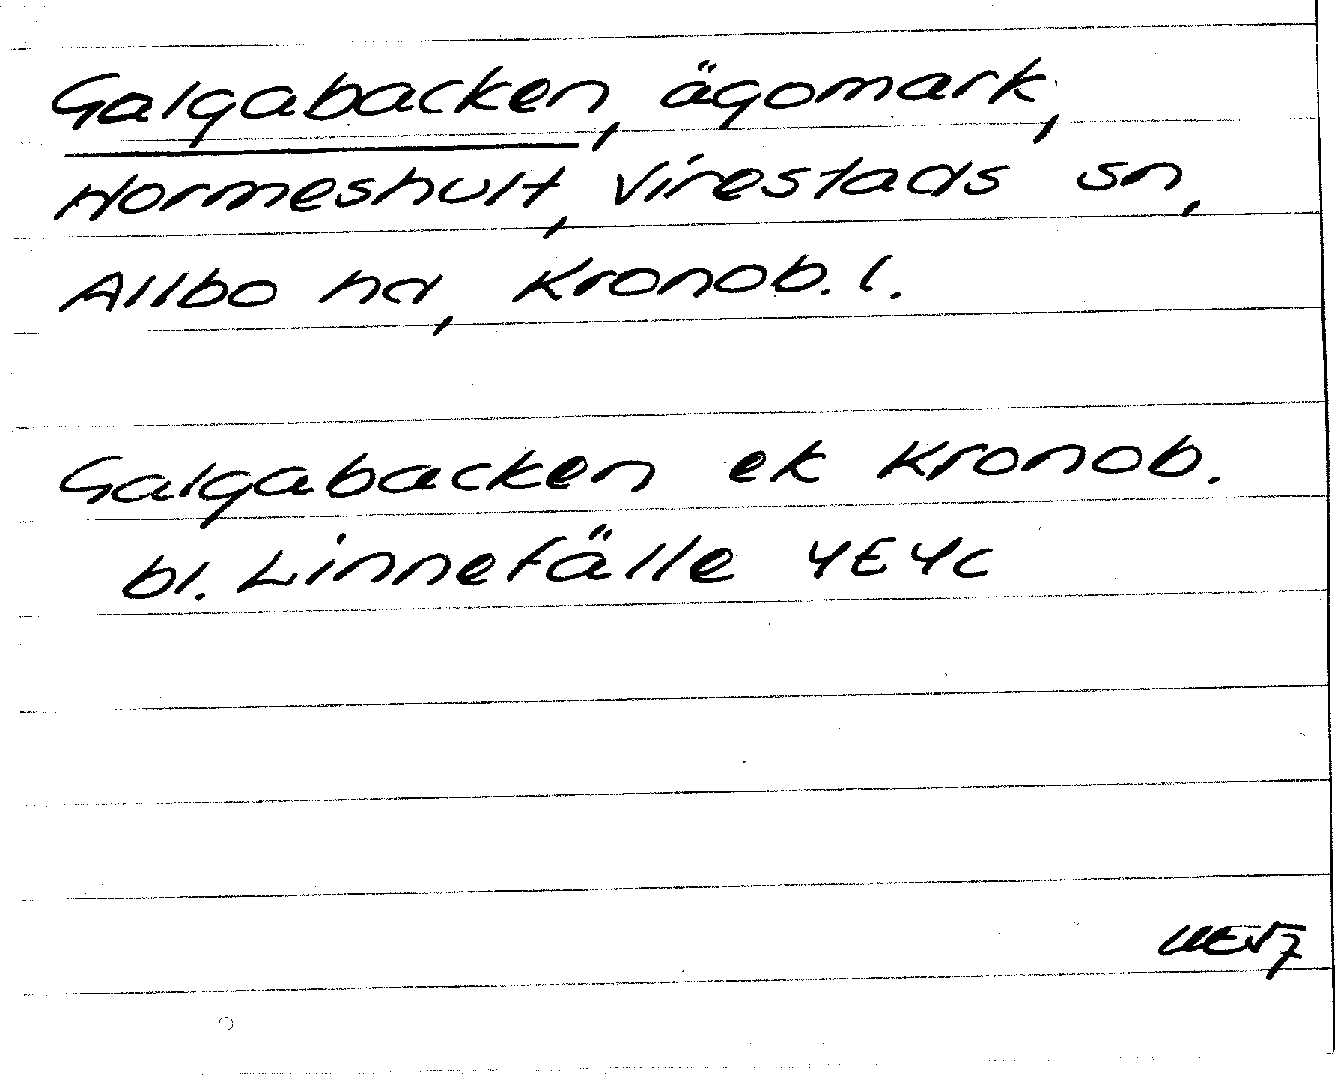 Galgabacken, ägomark,
Hormeshult, Virestads sn,
Allbo hd, Kronob. l.
Galgabacken ek Kronob.
bl. Linnefälle 4E4c